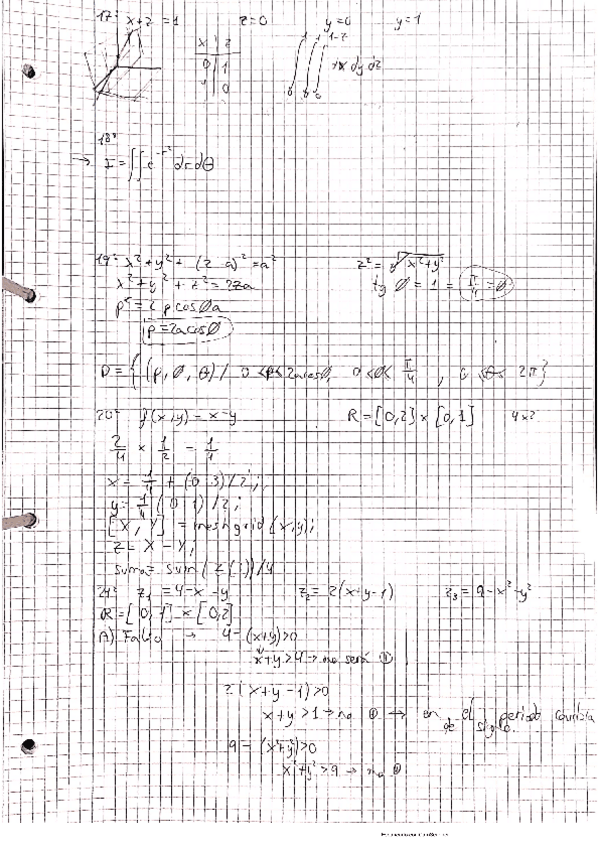 17º x+z=1 z=0 y=0 y=1
x | z
0 | 1
1 | 0
1 1 1-z
∫∫∫ dx dy dz
0 0 0
18º
→ I = ∫∫ e^-r² dr dθ
19º x²+y²+(z-a)²=a² z² = √x²+y²
x²+y²+z²=2za tg Ø = 1 = π/4 = Ø
ρ² = 2ρcosØa
ρ=2acosØ
D = {(ρ, Ø, θ) / 0<ρ<2acosØ, 0<Ø<π/4, 0<θ<2π}
20º f(x,y) = x-y R=[0,2]x[0,1] 4x2
2/4 x 1/2 = 1/4
x = 1/4 + (0:3)/2;
y = 1/4 (0:1)/2;
[X, Y] = meshgrid(x,y);
Z = X - Y;
suma = sum(Z(:))/4
z₁ = 4-x-y z₂ = 2(x+y-1) z₃ = 9-x²-y²
R=[0,1]x[0,2]
A) Falso → 4-(x+y)>0
x+y>4 → no será
2(x+y-1)>0
x+y>1 → no → en el periodo cambia
de signo.
9-(x²+y²)>0
x²+y²>9 → no